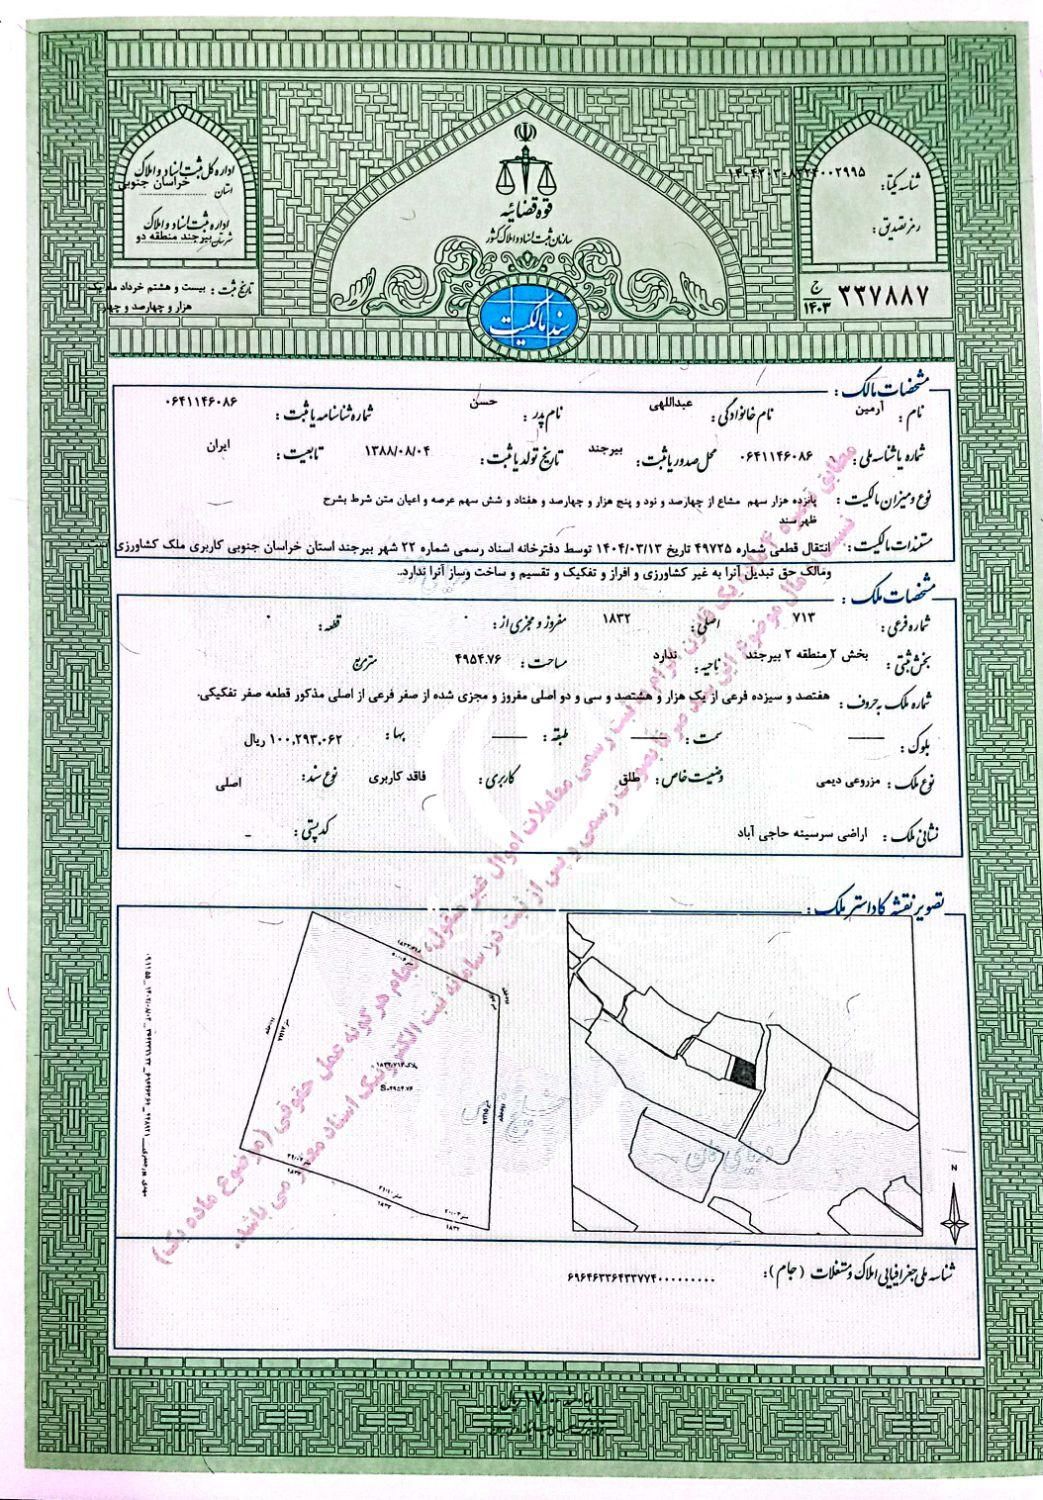 قوه قضائیه
سازمان ثبت اسناد و املاک کشور
سند مالکیت
اداره کل ثبت اسناد و املاک
استان خراسان جنوبی
اداره ثبت اسناد و املاک
شهرستان بیرجند منطقه دو
تاریخ ثبت : بیست و هشتم خرداد ماه یک
هزار و چهارصد و چهار
شناسه یکتا:
رمز تصدیق :
ج
۱۴۰۳ ۳۳۷۸۸۷
مشخصات مالک :
نام : آرمین نام خانوادگی : عبداللهی نام پدر : حسن شماره شناسنامه یا ثبت : ۰۶۴۱۱۴۶۰۸۶
شماره یا شناسه ملی : ۰۶۴۱۱۴۶۰۸۶ محل صدور یا ثبت : بیرجند تاریخ تولد یا ثبت : ۱۳۸۸/۰۸/۰۴ تابعیت : ایران
نوع و میزان مالکیت : پانزده هزار سهم مشاع از چهارصد و نود و پنج هزار و چهارصد و هفتاد و شش سهم عرصه و اعیان متن شرط بشرح
ظهر سند
مستندات مالکیت : انتقال قطعی شماره ۴۹۷۲۵ تاریخ ۱۴۰۴/۰۳/۱۳ توسط دفترخانه اسناد رسمی شماره ۲۲ شهر بیرجند استان خراسان جنوبی کاربری ملک کشاورزی
ومالک حق تبدیل آنرا به غیر کشاورزی و افراز و تفکیک و تقسیم و ساخت وساز آنرا ندارد.
مشخصات ملک :
شماره فرعی : ۷۱۳ اصلی : ۱۸۳۲ مفروز و مجزی از : ۰ قطعه : ۰
بخش ثبتی : بخش ۲ منطقه ۲ بیرجند ناحیه : ندارد مساحت : ۴۹۵۴.۷۶ مترمربع
شماره ملک به حروف : هفتصد و سیزده فرعی از یک هزار و هشتصد و سی و دو اصلی مفروز و مجزی شده از صفر فرعی از اصلی مذکور قطعه صفر تفکیکی.
بلوک : —— سمت : —— طبقه : —— بها : ۱۰۰,۲۹۳,۰۶۲ ریال
نوع ملک : مزروعی دیمی وضعیت خاص : طلق کاربری : فاقد کاربری نوع سند : اصلی
نشانی ملک : اراضی سرسینه حاجی آباد کدپستی : _
تصویر نقشه کاداستر ملک :
پلاک ۱۸۳۲/۷۱۳
S=۴۹۵۴.۷۶
۱۸۳۲
۱۸۳۲
۱۸۳۲
N
شناسه ملی جغرافیایی املاک و مستغلات (جام) : ۶۹۶۴۶۳۳۶۴۳۳۷۷۴۰۰۰۰۰۰۰۰۰